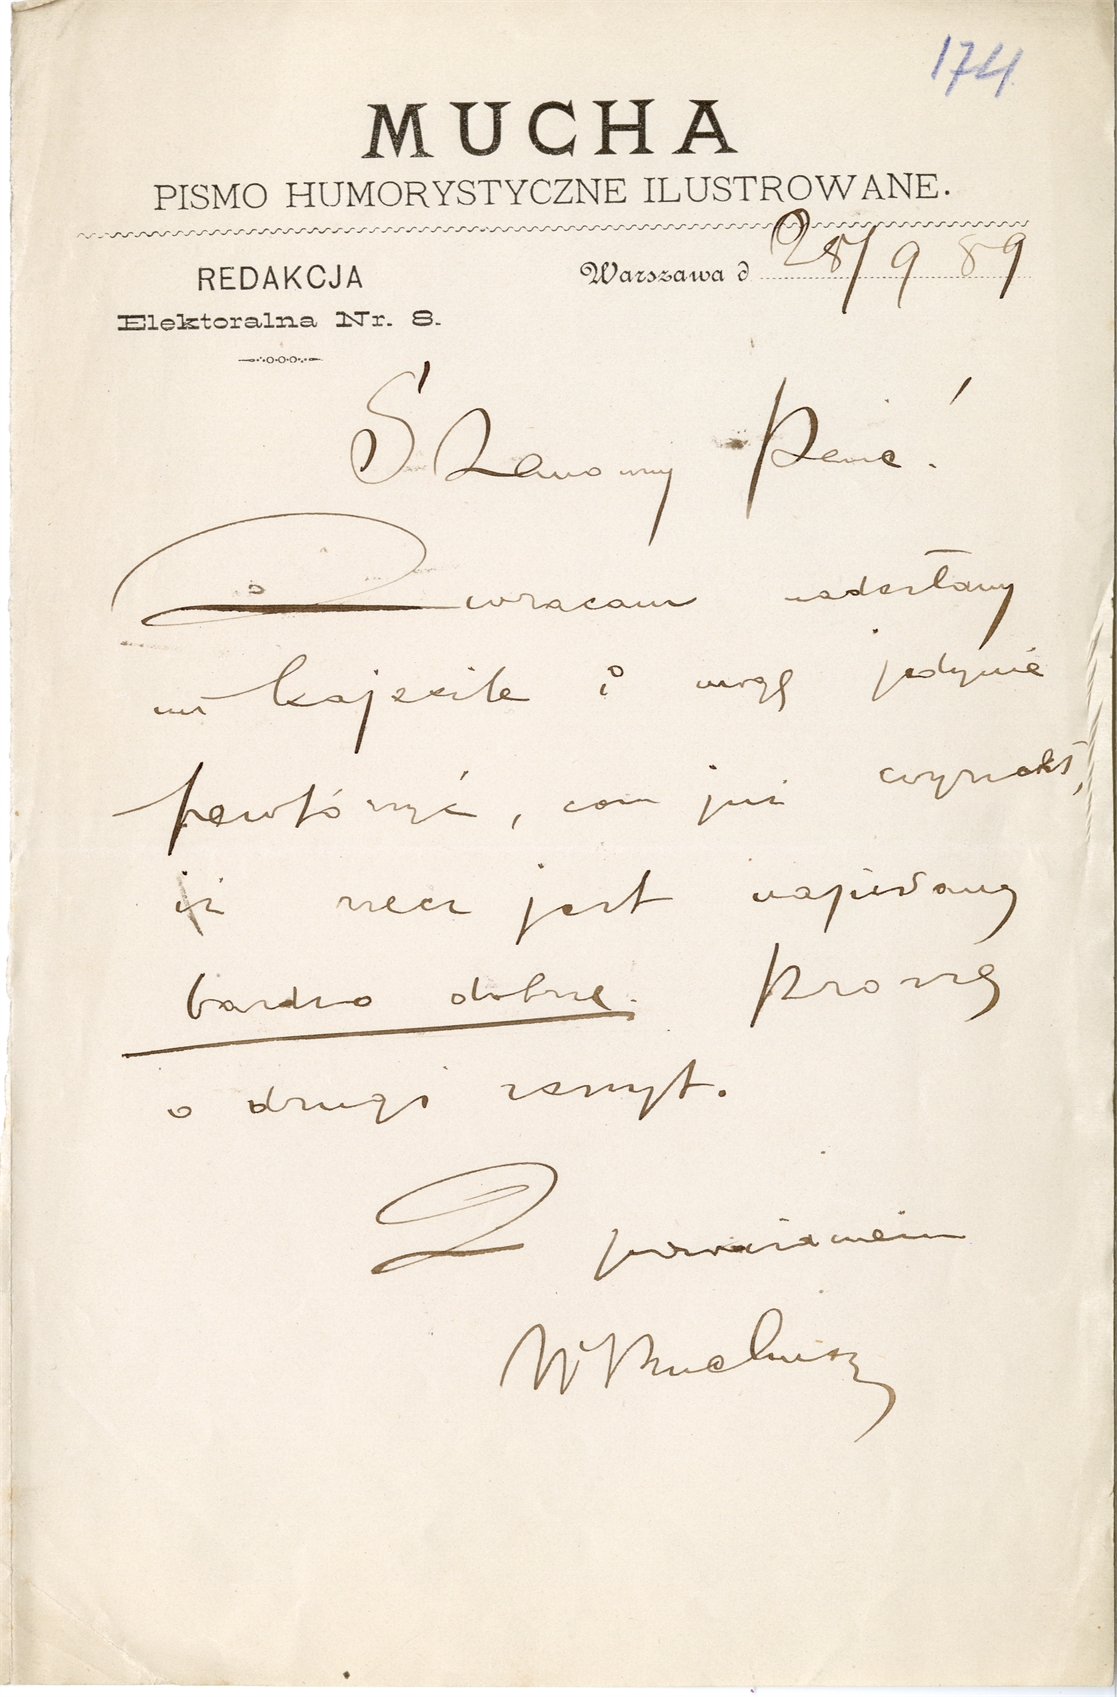 174
MUCHA
PISMO HUMORYSTYCZNE ILUSTROWANE.
Warszawa d 28/9 89
REDAKCJA
Elektoralna Nr. 8.
Szanowny Panie!
Zwracam nadesłany
mi kajecik i mogę jedynie
powtórzyć, com już wyrzekł,
iż rzecz jest napisaną
bardzo dobrze. Proszę
o drugi zeszyt.
Z poważaniem